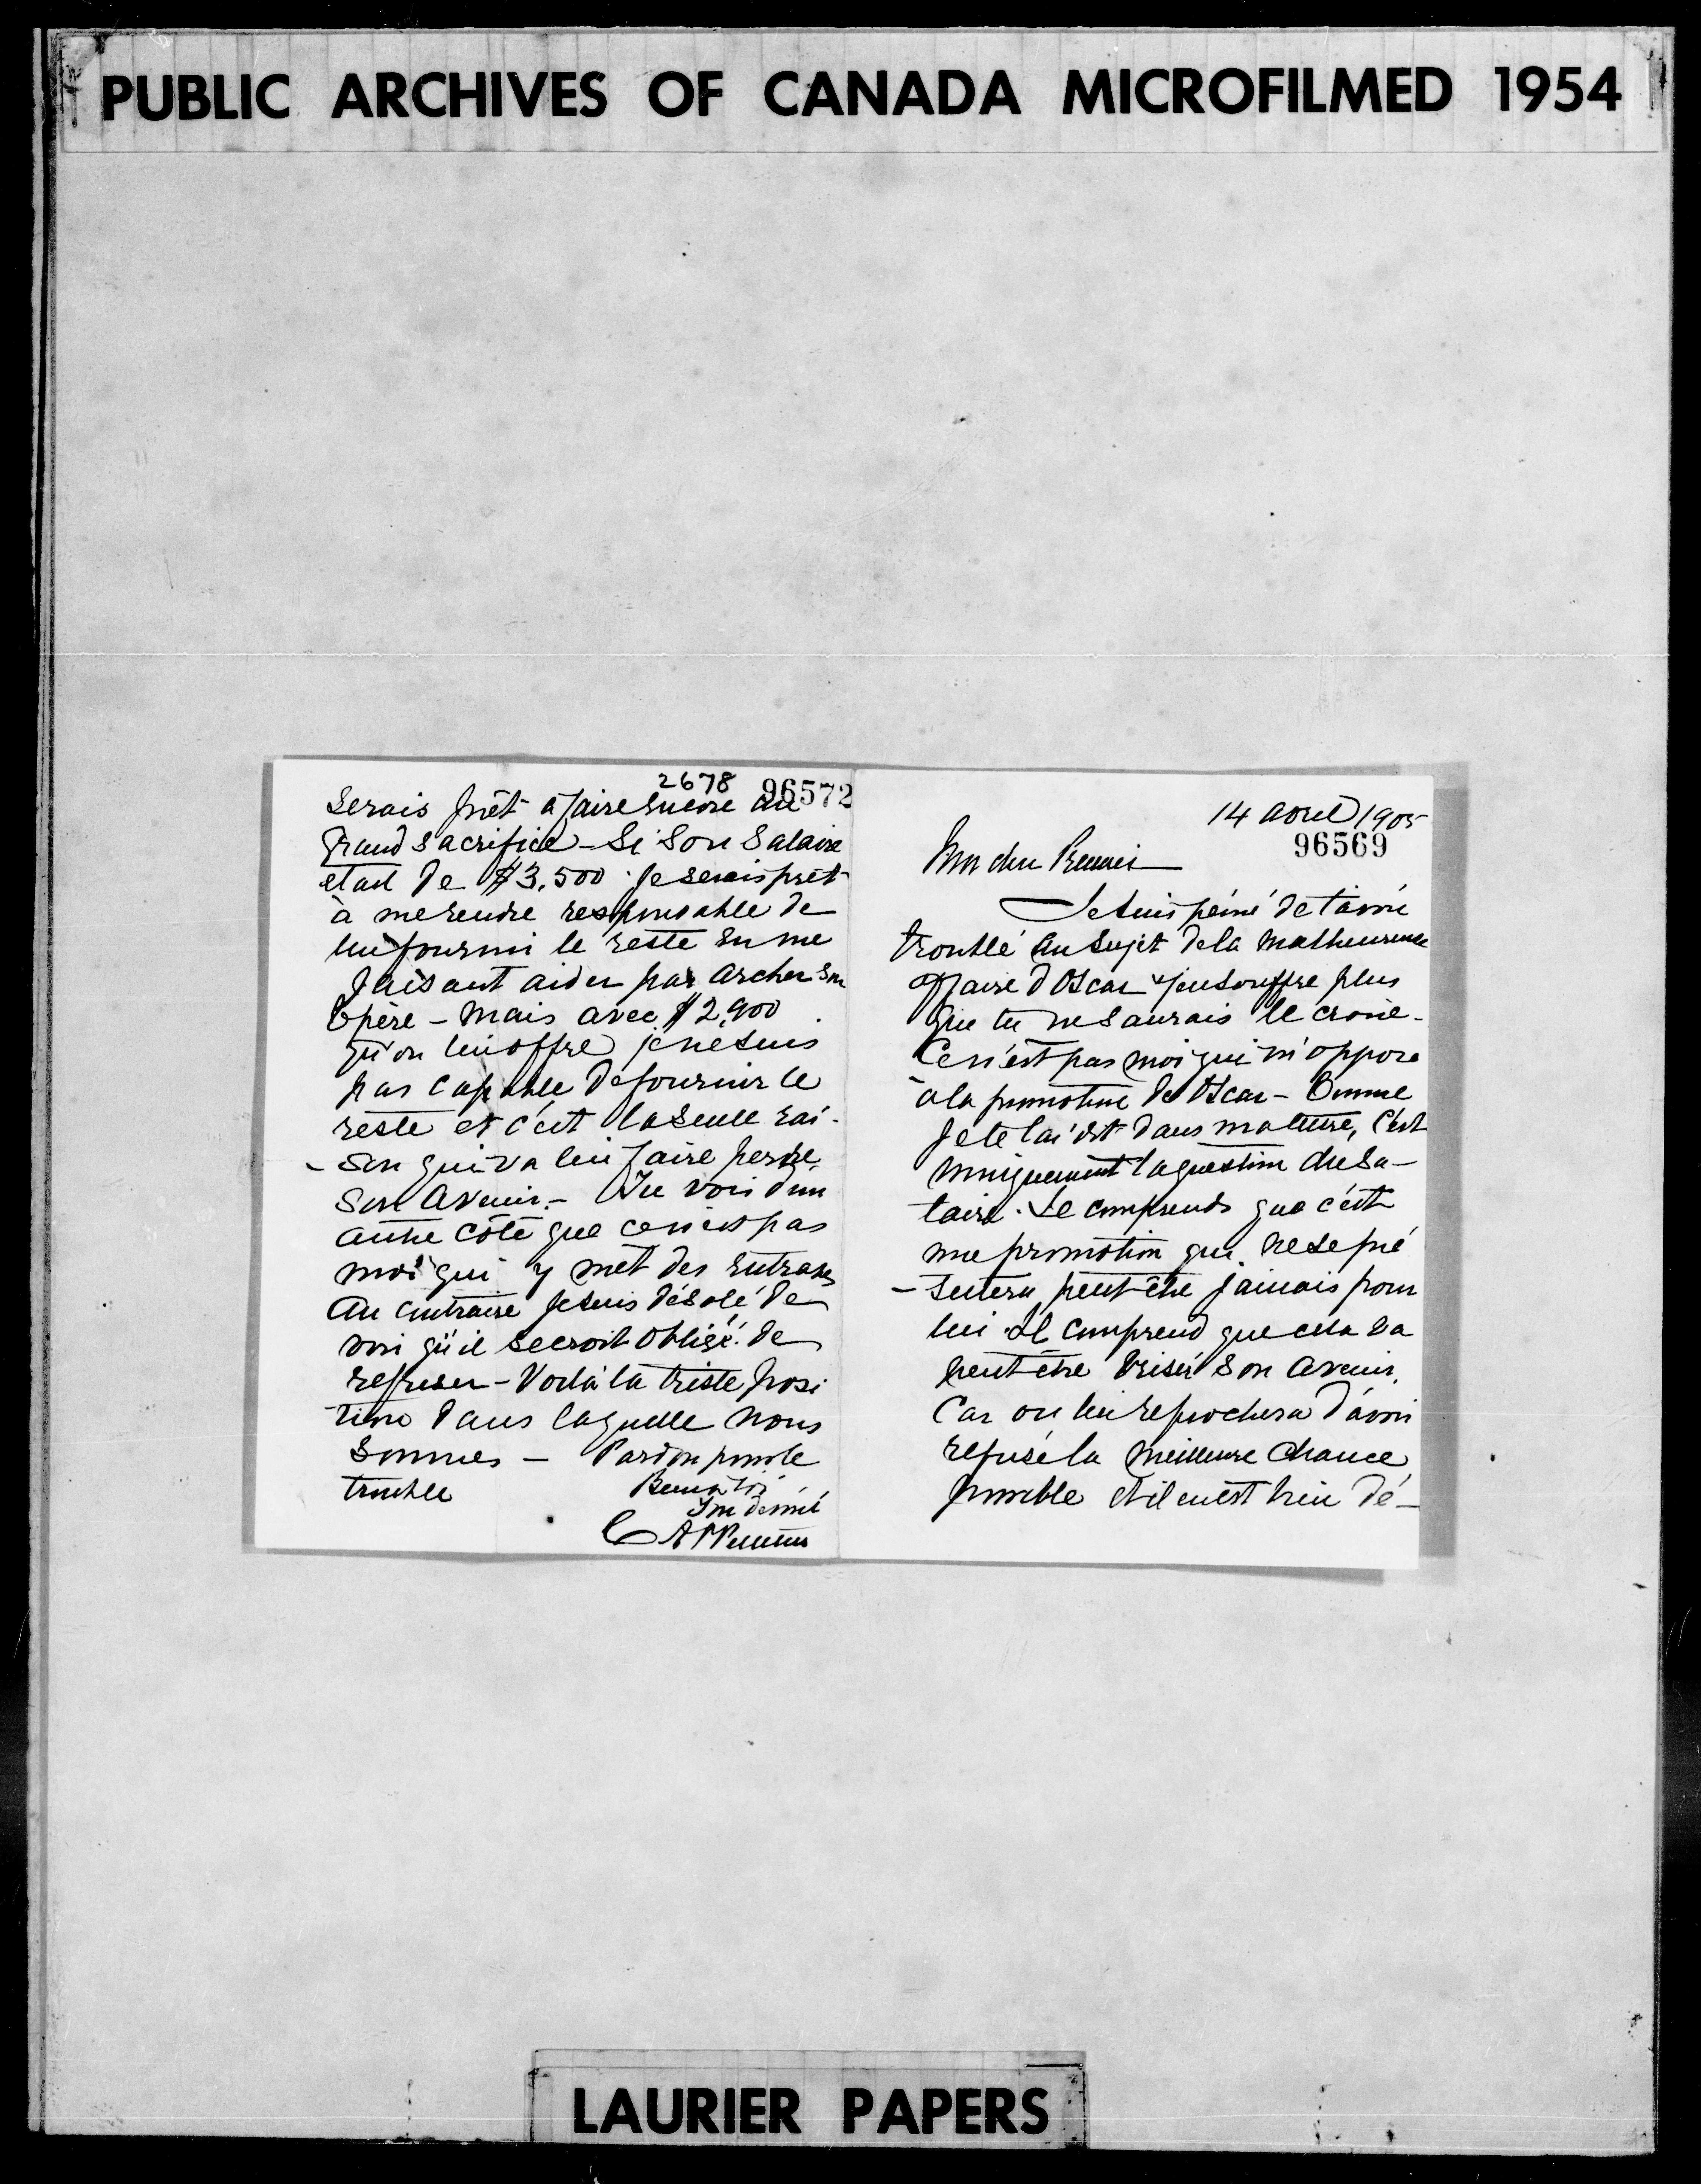 PUBLIC ARCHIVES OF CANADA MICROFILMED 1954
2678 96572
serais prêt à faire encore un
grand sacrifice - Si son salaire
etait de $3,500 je serais prêt
à me rendre responsable de
lui fourni le reste en me
faisant aider par Archer son
Bpère - Mais avec $2,900
qu'on lui offre je ne suis
pas capable de fournir le
reste et c'est la seule rai-
-son qui va lui faire perdre
son avenir. - Tu vois d'un
autre côté que ce n'est pas
moi qui y met des entraves
Au contraire je suis désolé de
voir qu'il secroit obligé de
refuser - Voilà la triste posi
tion dans laquelle nous
sommes - Pardon pour le
trouble Bien à toi
Ton dévoué
14 avril 1905
96569
Mon cher
Je suis peiné de t'avoir
troublé au sujet de la malheureuse
affaire d'Oscar & j'en souffre plus
que tu ne saurais le croire -
Ce n'est pas moi qui m'oppose
à la promotion de Oscar - Comme
je te l'ai dit dans ma lettre, c'est
uniquement la question du sa-
laire. Je comprends que c'est
une promotion qui ne se pré
-sentera peut-être jamais pour
lui Il comprend que cela va
peut-être briser son avenir.
Car on lui reprochera d'avoir
refusé la meilleure chance
possible et il en est bien dé-
LAURIER PAPERS